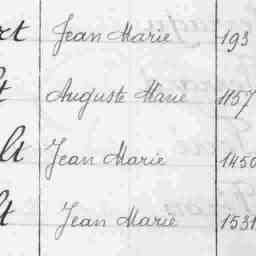 rt Jean Marie 193
lt Auguste Marie 1157
lt Jean Marie 1450
lt Jean Marie 1531